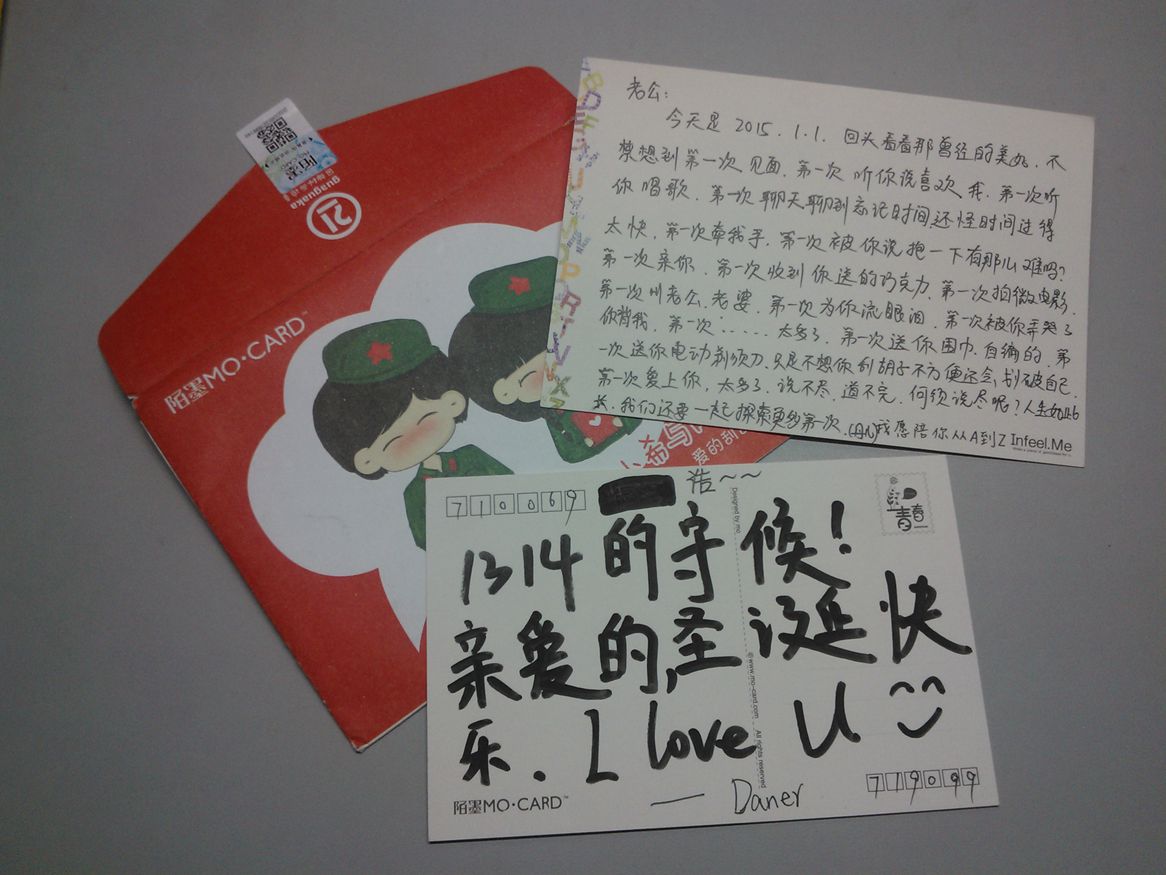 老公：
今天是 2015.1.1. 回头看看那曾经的美好，不
禁想到第一次见面，第一次听你说喜欢我，第一次听
你唱歌，第一次聊天聊到忘记时间，还怪时间过得
太快，第一次牵我手，第一次被你说抱一下有那么难吗？
第一次亲你，第一次收到你送的巧克力，第一次拍微电影，
第一次叫老公、老婆，第一次为你流眼泪，第一次被你弄哭了
你背我，第一次......太多了，第一次送你围巾，自编的，第
一次送你电动剃须刀，只是不想你刮胡子不方便还会划破自己，
第一次爱上你，太多了，说不尽，道不完，何须说尽呢？人生如此
长，我们还要一起探索更多第一次，(丹儿)我愿陪你从A到Z Infeel.Me
guaguaka
21
陌墨MO·CARD™
爱的刮
710069
浩~~
Designed by mo
青春
1314的守候！
亲爱的，圣诞快
乐. I love U
©www.mo-card.com All rights reserved
— Daner
陌墨MO·CARD™
719099